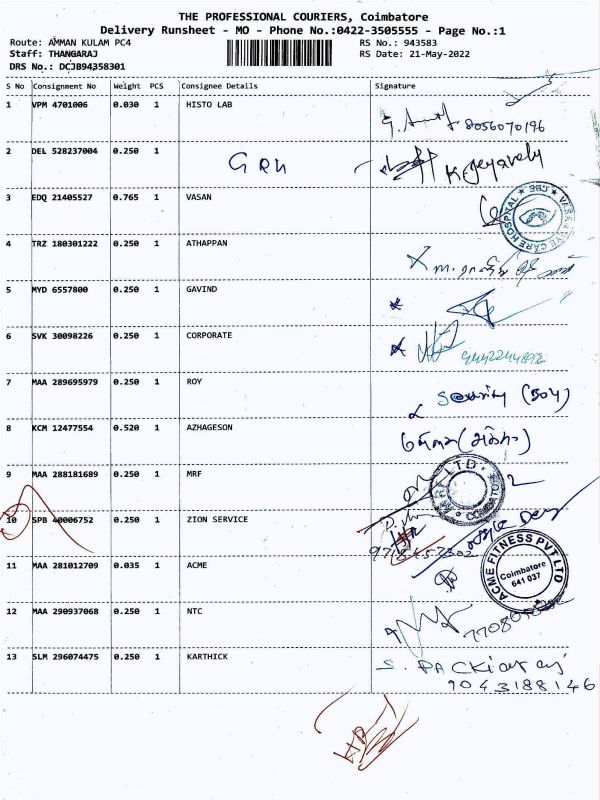 THE PROFESSIONAL COURIERS, Coimbatore
Delivery Runsheet - MO - Phone No.:0422-3505555 - Page No.:1
Route: AMMAN KULAM PC4 RS No.: 943583
Staff: THANGARAJ RS Date: 21-May-2022
DRS No.: DCJB94358301
S No Consignment No Weight PCS Consignee Details Signature
1 VPM 4701006 0.030 1 HISTO LAB
8056070196
2 DEL 528237004 0.250 1 GRH K. Jeyavely
3 EDQ 21405527 0.765 1 VASAN
VASAN EYE CARE HOSPITAL * CBE *
4 TRZ 180301222 0.250 1 ATHAPPAN
5 MYD 6557800 0.250 1 GAVIND
6 SVK 30098226 0.250 1 CORPORATE
9442244898
7 MAA 289695979 0.250 1 ROY
(BOY)
8 KCM 12477554 0.520 1 AZHAGESON
9 MAA 288181689 0.250 1 MRF
MRF LTD. COIMBATORE
10 SPB 40006752 0.250 1 ZION SERVICE
11 MAA 281012709 0.035 1 ACME
ACME FITNESS PVT LTD
Coimbatore
641 037
12 MAA 290937068 0.250 1 NTC
13 SLM 296074475 0.250 1 KARTHICK S. PACKiaraj
9043188146